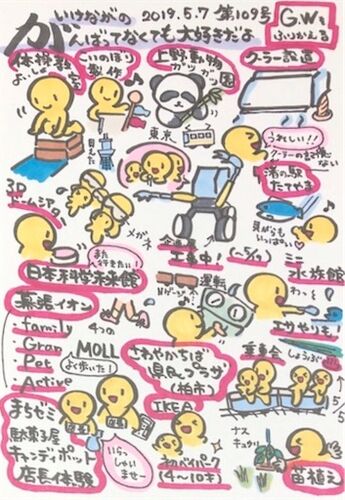 いけながの 2019.5.7 第109号
がんばってなくても大好きだよ
G.W.
ふりかえる
体操教
こいのぼり
製作
上野動物
ガツガツ園
クーラー設置
うれしい!!
東京
見えた
渚の駅
たてやま
3D
ドームシアター
メガネ
工事中!
(~5/7)
また
行きたい!
日本科学未来館
運転
水族館
わっ
エサやりも!
幕張イオン
・family
・Gran
・Pet
・Active
4つの
MOLL
よく歩いた!
さわやかちば
県民プラザ
(柏市)
しょうぶ
5/5
まちゼミ
駄菓子屋
キャンディポット
店長体験
いらっ
しゃい
ませー
IKEA
初バイパーク
(4~10才)
ナス
キュウリ
苗植え